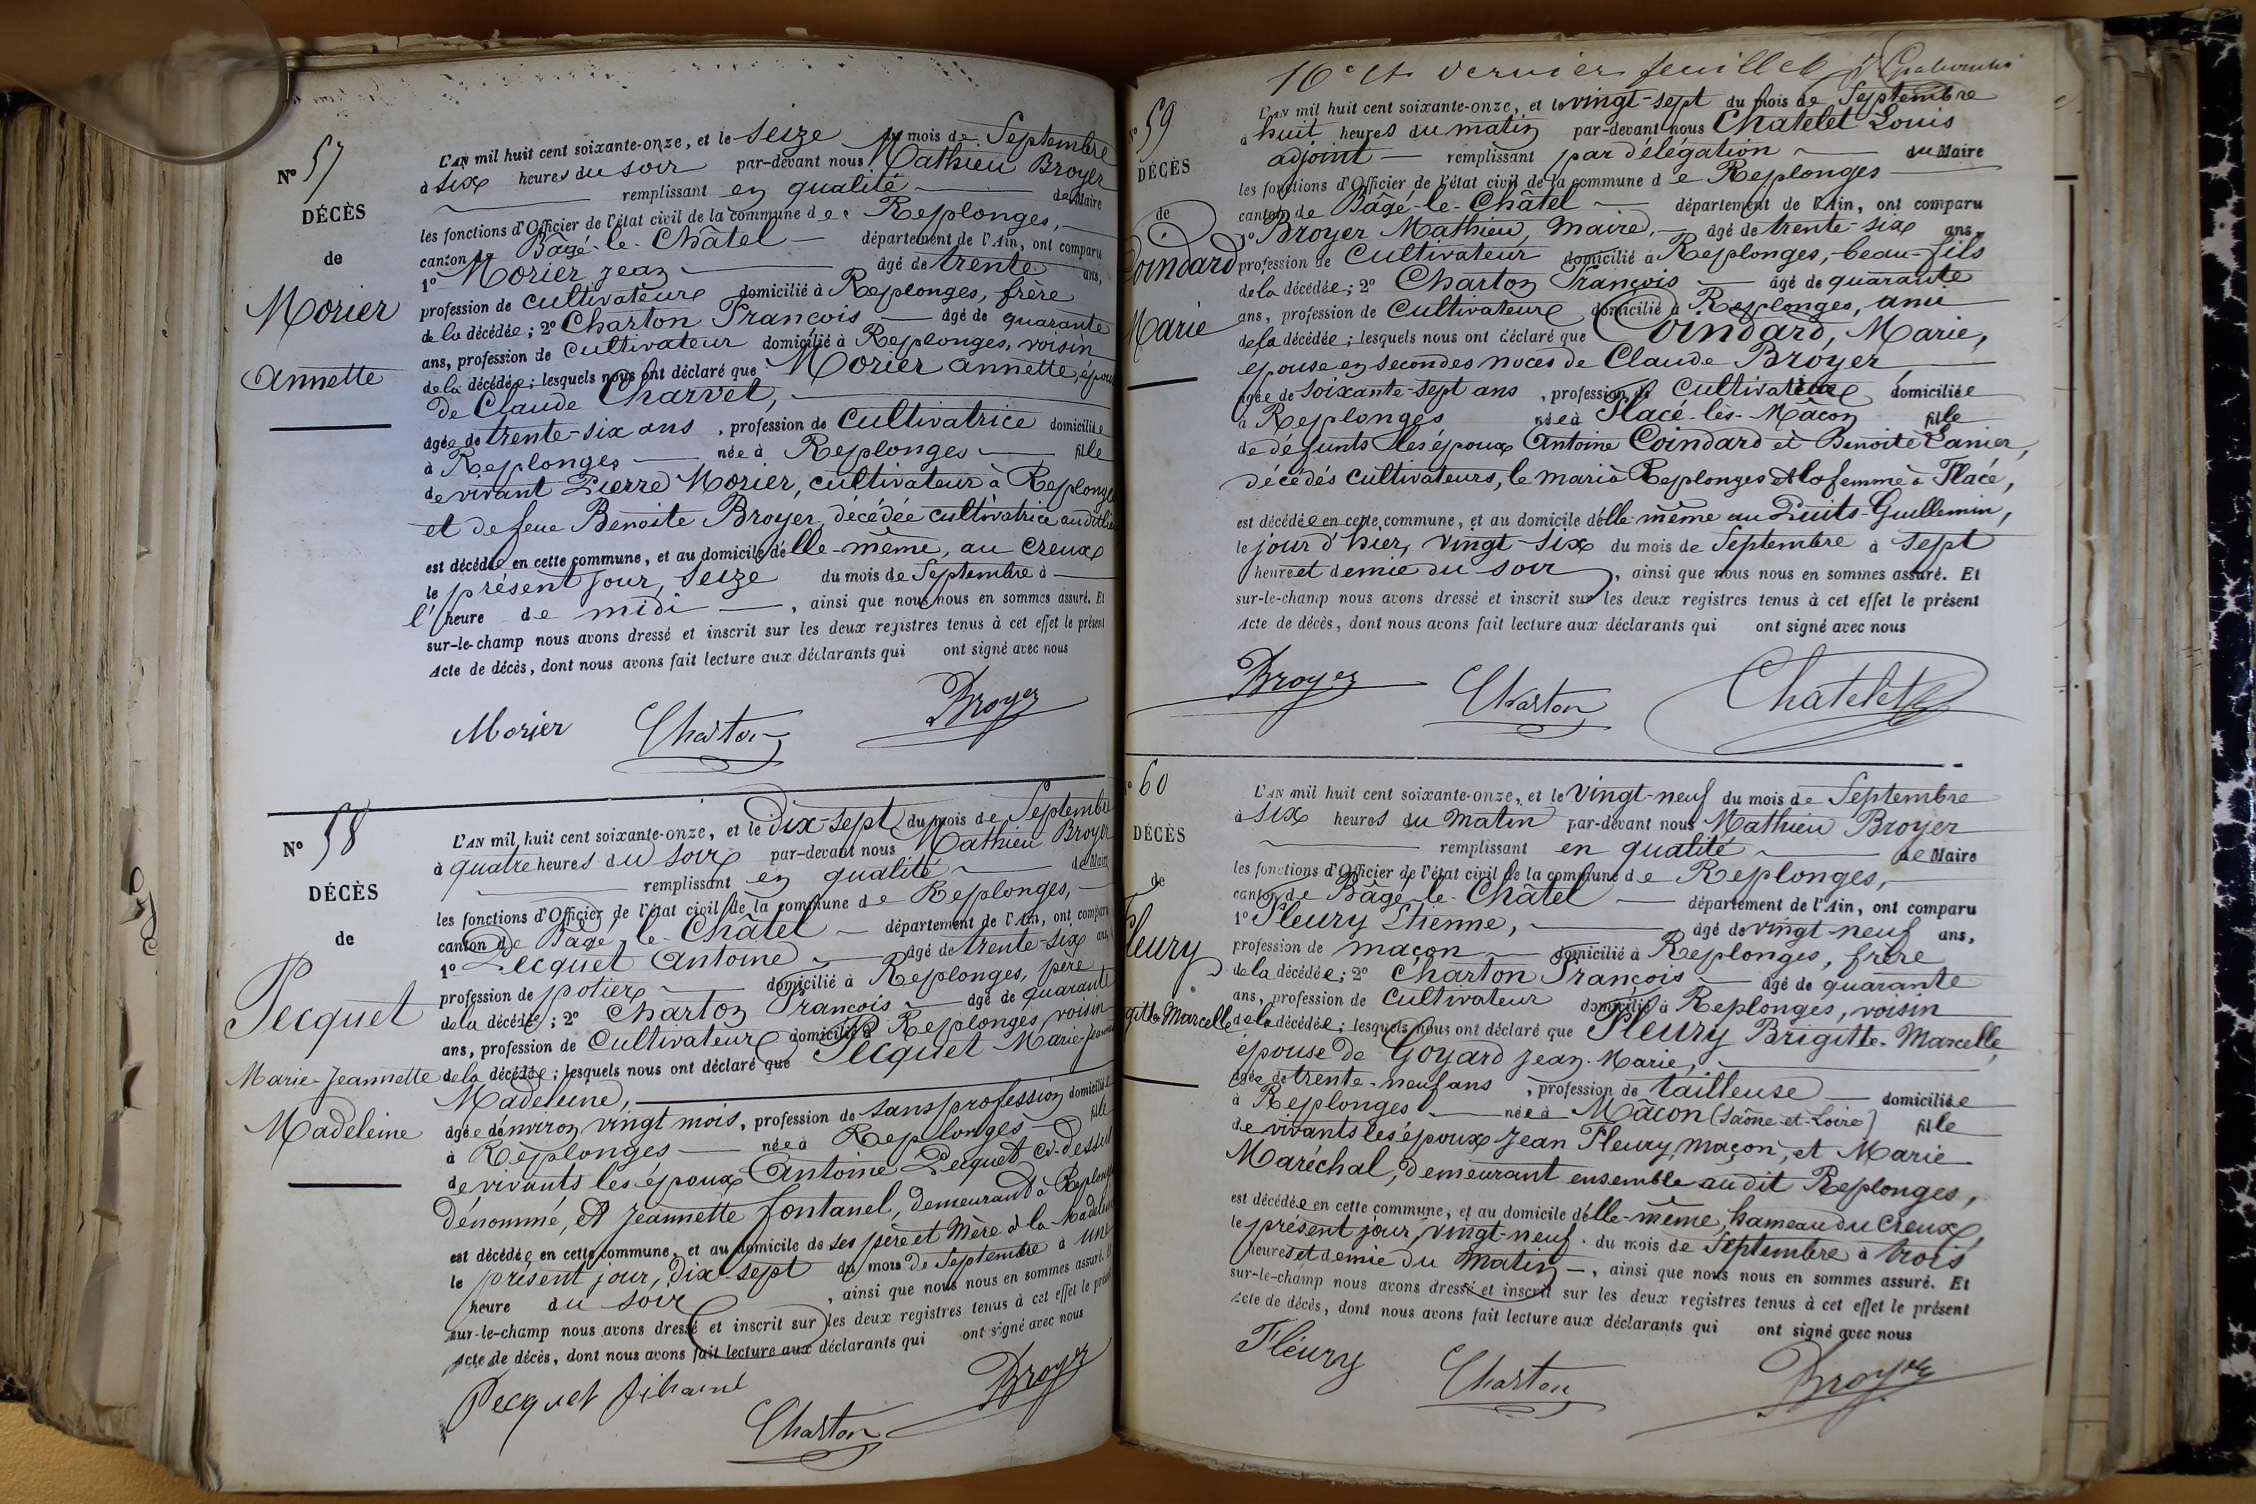 Nº 57
DÉCÈS
de
Morier
Annette
L'AN mil huit cent soixante-onze, et le seize du mois de Septembre
à six heures du soir par-devant nous Mathieu Broyer
remplissant en qualité de Maire
les fonctions d'Officier de l'état civil de la commune de Replonges,
canton de Bâgé-le-Châtel département de l'Ain, ont comparu
1º Morier Jean âgé de trente ans,
profession de cultivateur domicilié à Replonges, frère
de la décédée; 2º Charton François âgé de quarante
ans, profession de cultivateur domicilié à Replonges, voisin
de la décédée; lesquels nous ont déclaré que Morier Annette, épou
de Claude Charvet,
âgée de trente-six ans, profession de cultivatrice domiciliée
à Replonges née à Replonges fille
de vivant Pierre Morier, cultivateur à Replonge
et de feue Benoite Broyer, décédée cultivatrice audit lieu
est décédée en cette commune, et au domicile d'elle-même, au creux
le présent jour, seize du mois de Septembre à
l'heure de midi, ainsi que nous nous en sommes assuré. Et
sur-le-champ nous avons dressé et inscrit sur les deux registres tenus à cet effet le présent
Acte de décès, dont nous avons fait lecture aux déclarants qui ont signé avec nous
Morier Charton Broyer
Nº 58
DÉCÈS
de
Pecquet
Marie-Jeannette
Madeleine
L'AN mil huit cent soixante-onze, et le Dix-sept du mois de Septembre
à quatre heures du soir par-devant nous Mathieu Broyer
remplissant en qualité de Maire
les fonctions d'Officier de l'état civil de la commune de Replonges,
canton de Bâgé-le-Châtel département de l'Ain, ont comparu
1º Pecquet Antoine âgé de trente-six ans,
profession de potier domicilié à Replonges, père
de la décédée; 2º Charton François âgé de quarante
ans, profession de cultivateur domicilié à Replonges, voisin
de la décédée; lesquels nous ont déclaré que Pecquet Marie-Jeannette
Madeleine,
âgée d'environ vingt mois, profession de sans profession domiciliée
à Replonges née à Replonges fille
de vivants les époux Antoine Pecquet ci-dessus
dénommé, et Jeannette Fontanel, demeurant à Replonges
est décédée en cette commune, et au domicile de ses père et mère à la Madeleine
le présent jour, Dix-sept du mois de Septembre à une
heure du soir, ainsi que nous nous en sommes assuré. Et
sur-le-champ nous avons dressé et inscrit sur les deux registres tenus à cet effet le présent
Acte de décès, dont nous avons fait lecture aux déclarants qui ont signé avec nous
Pecquet Charton Broyer
16e et dernier feuillet
Nº 59
DÉCÈS
de
Coindard
Marie
L'AN mil huit cent soixante-onze, et le vingt-sept du mois de Septembre
à huit heures du matin par-devant nous Chatelet Louis
adjoint remplissant par délégation du Maire
les fonctions d'Officier de l'état civil de la commune de Replonges
canton de Bâgé-le-Châtel département de l'Ain, ont comparu
1º Broyer Mathieu, maire, âgé de trente-six ans,
profession de cultivateur domicilié à Replonges, beau-fils
de la décédée; 2º Charton François âgé de quarante
ans, profession de cultivateur domicilié à Replonges, ami
de la décédée; lesquels nous ont déclaré que Coindard, Marie,
épouse en secondes noces de Claude Broyer
âgée de soixante-sept ans, profession de cultivatrice domiciliée
à Replonges née à Flacé-lès-Mâcon fille
de défunts les époux Antoine Coindard et Benoite Panier,
décédés cultivateurs, le mari à Replonges et la femme à Flacé,
est décédée en cette commune, et au domicile d'elle-même au Puits-Guillemin,
le jour d'hier, vingt-six du mois de Septembre à sept
heures et demie du soir, ainsi que nous nous en sommes assuré. Et
sur-le-champ nous avons dressé et inscrit sur les deux registres tenus à cet effet le présent
Acte de décès, dont nous avons fait lecture aux déclarants qui ont signé avec nous
Broyer Charton Chatelet
Nº 60
DÉCÈS
de
Fleury
gitte Marcelle
L'AN mil huit cent soixante-onze, et le vingt-neuf du mois de Septembre
à six heures du matin par-devant nous Mathieu Broyer
remplissant en qualité de Maire
les fonctions d'Officier de l'état civil de la commune de Replonges,
canton de Bâgé-le-Châtel département de l'Ain, ont comparu
1º Fleury Etienne, âgé de vingt-neuf ans,
profession de maçon domicilié à Replonges, frère
de la décédée; 2º Charton François âgé de quarante
ans, profession de cultivateur domicilié à Replonges, voisin
de la décédée; lesquels nous ont déclaré que Fleury Brigitte-Marcelle,
épouse de Goyard Jean-Marie,
âgée de trente-neuf ans, profession de tailleuse domiciliée
à Replonges née à Mâcon (Saône-et-Loire) fille
de vivants les époux Jean Fleury, maçon, et Marie
Maréchal, demeurant ensemble audit Replonges,
est décédée en cette commune, et au domicile d'elle-même, hameau du Creux,
le présent jour, vingt-neuf du mois de Septembre à trois
heures et demie du matin, ainsi que nous nous en sommes assuré. Et
sur-le-champ nous avons dressé et inscrit sur les deux registres tenus à cet effet le présent
Acte de décès, dont nous avons fait lecture aux déclarants qui ont signé avec nous
Fléury Charton Broyer